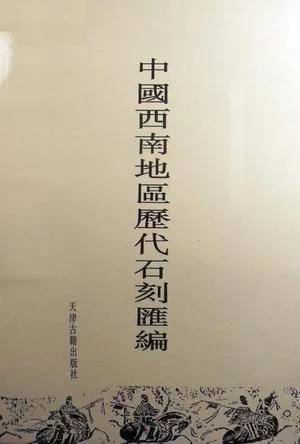 中國西南地區歷代石刻匯編
天津古籍出版社